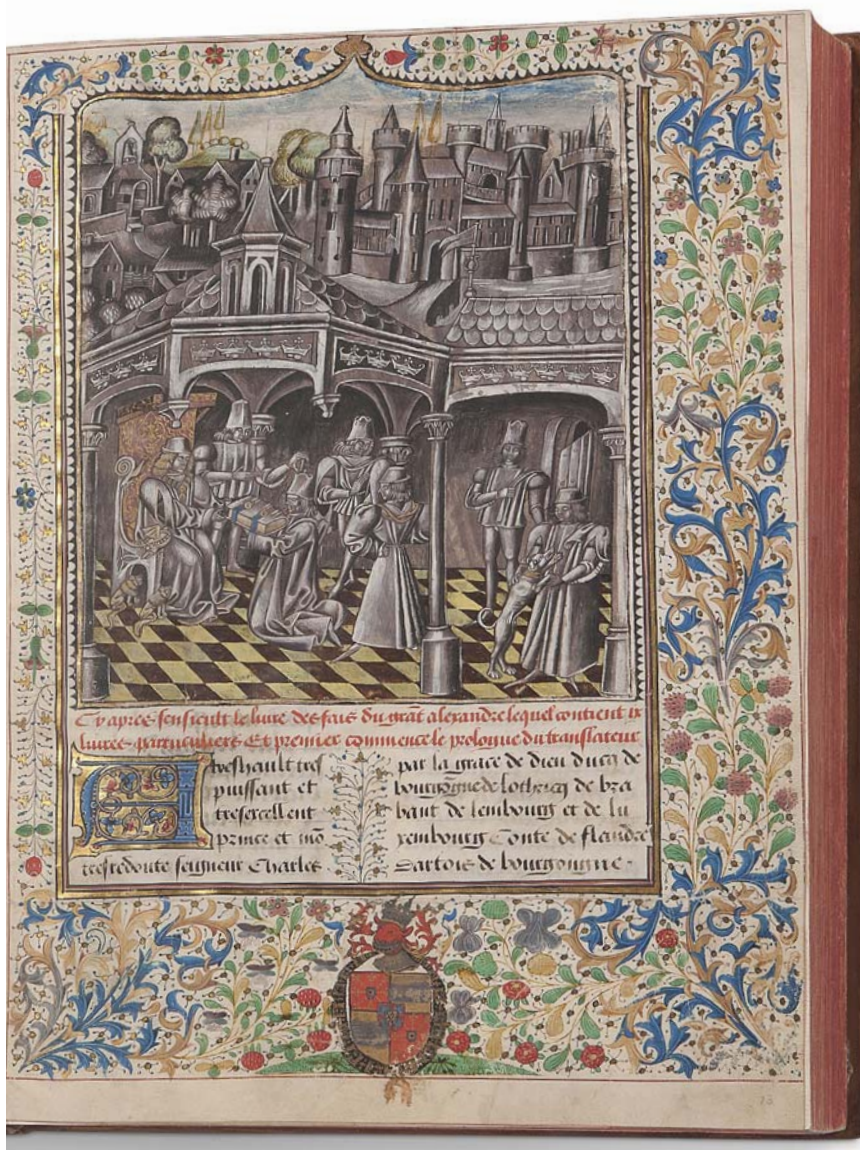 Cy apres sensieult le liure des fais du grāt alexandre lequel contient ix
liures particuliers Et premier commence le prologue du translateur
A treshault tres
puissant et
tresexcellent
prince et mō
tresredoute seigneur Charles
par la grace de dieu ducq de
bourgōgne de lothricq de bra
bant de lembourg et de lu
xembourg Conte de flandre
dartois de bourgongne